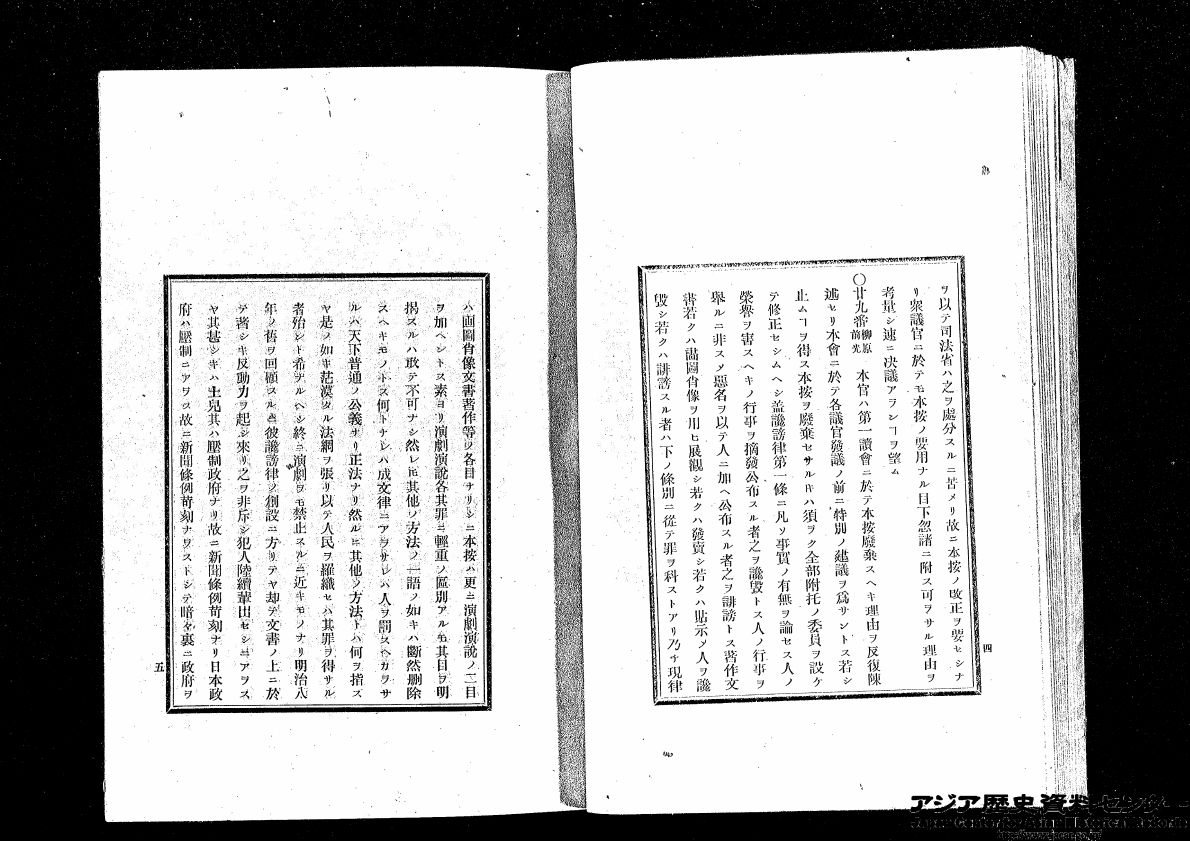 ヲ以テ司法省ハ之ヲ處分スルニ苦メリ故ニ本按ノ改正ヲ要セシナ
リ衆議官ニ於テモ本按ノ要用ナル目下忽諸ニ附ス可ヲサル理由ヲ
考量シ速ニ决議アヲンヿヲ望ム
〇廿九番柳原前光 本官ハ第一讀會ニ於テ本按廢棄スヘキ理由ヲ反復陳
述セリ本會ニ於テ各議官發議ノ前ニ特別ノ建議ヲ爲サントス若シ
止ムヿヲ得ス本按ヲ廢棄セサルキハ須ヲク全部附托ノ委員ヲ設ケ
テ修正セシムヘシ盖讒謗律第一條ニ凡ソ事實ノ有無ヲ論セス人ノ
榮譽ヲ害スヘキノ行事ヲ摘發公布スル者之ヲ讒毀トス人ノ行事ヲ
擧ルニ非スメ惡名ヲ以テ人ニ加ヘ公布スル者之ヲ誹謗トス著作文
書若クハ畵圖肖像ヲ用ヒ展觀シ若クハ發賣シ若クハ貼示メ人ヲ讒
毀シ若クハ誹謗スル者ハ下ノ條別ニ從テ罪ヲ科ストアリ乃チ現律
四
ハ画圖肖像文書著作等ノ各目ナリシニ本按ハ更ニ演劇演說ノ二目
ヲ加ヘントス素ヨリ演劇演說各其罪ニ輕重ノ區別アルモ其目ヲ明
揭スルハ敢テ不可ナシ然レ𪜈其他ノ方法ノ一語ノ如キハ斷然删除
スヘキモノトス何トナレハ成文律ニアヲサレハ人ヲ罰スヘカヲサ
ルハ天下普通ノ公義ナリ正法ナリ然ルニ其他ノ方法トハ何ヲ指ス
ヤ是ノ如キ茫漠タル法綱ヲ張リ以テ人民ヲ羅織セハ其罪ヲ得サル
者殆ント希ナルヘシ終ニ演劇ヲモ禁止スルニ近キモノナリ明治八
年ノ舊ヲ回顧スルニ彼讒謗律ノ創設ニ方リテヤ却テ文書ノ上ニ於
テ著シキ反動力ヲ起シ來リ之ヲ非斥シ犯人陸續輩出セシニアヲス
ヤ其甚シキハ土兒其ハ壓制政府ナリ故ニ新聞條例苛刻ナリ日本政
府ハ壓制ニアヲス故ニ新聞條例苛刻ナヲストシテ暗々裏ニ政府ヲ
五
アジア歴史資料センター
Japan Center for Asian Historical Records
http://www.jacar.go.jp